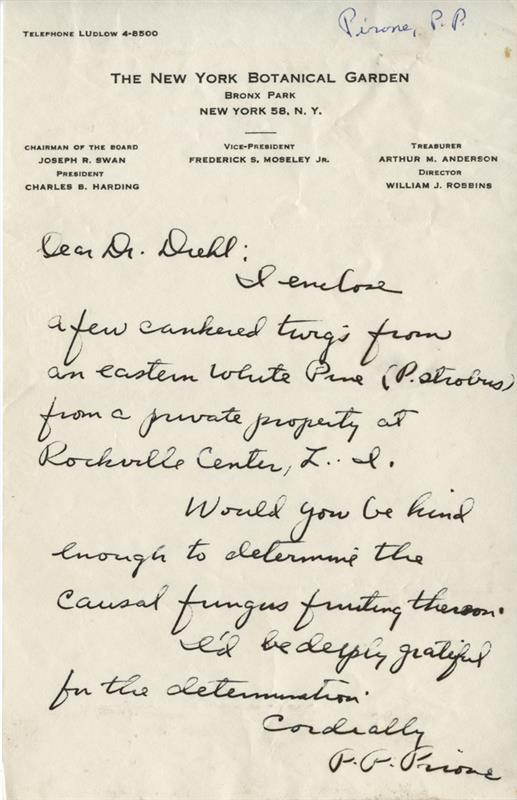 Pirone, P.P.
TELEPHONE LUDLOW 4-8500
THE NEW YORK BOTANICAL GARDEN
BRONX PARK
NEW YORK 58, N. Y.
CHAIRMAN OF THE BOARD
JOSEPH R. SWAN
PRESIDENT
CHARLES B. HARDING
VICE-PRESIDENT
FREDERICK S. MOSELEY JR.
TREASURER
ARTHUR M. ANDERSON
DIRECTOR
WILLIAM J. ROBBINS
Dear Dr. Diehl:
I enclose
a few cankered twigs from
an eastern White Pine (P. strobus)
from a private property at
Rockville Center, L. I.
Would you be kind
enough to determine the
causal fungus fruiting thereon.
I'd be deeply grateful
for the determination.
Cordially
P. P. Pirone